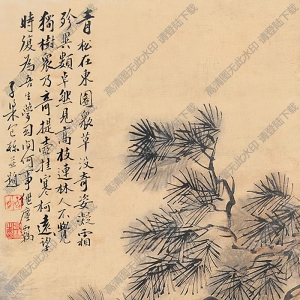 青松在東園衆草沒奇姿凝霜
殄異類卓然見高枝連林人不覺
獨樹衆乃奇提壺挂寒柯遠望
時復為吾生夢幻間何事紲塵羈
高清图无此水印 请登陆下载